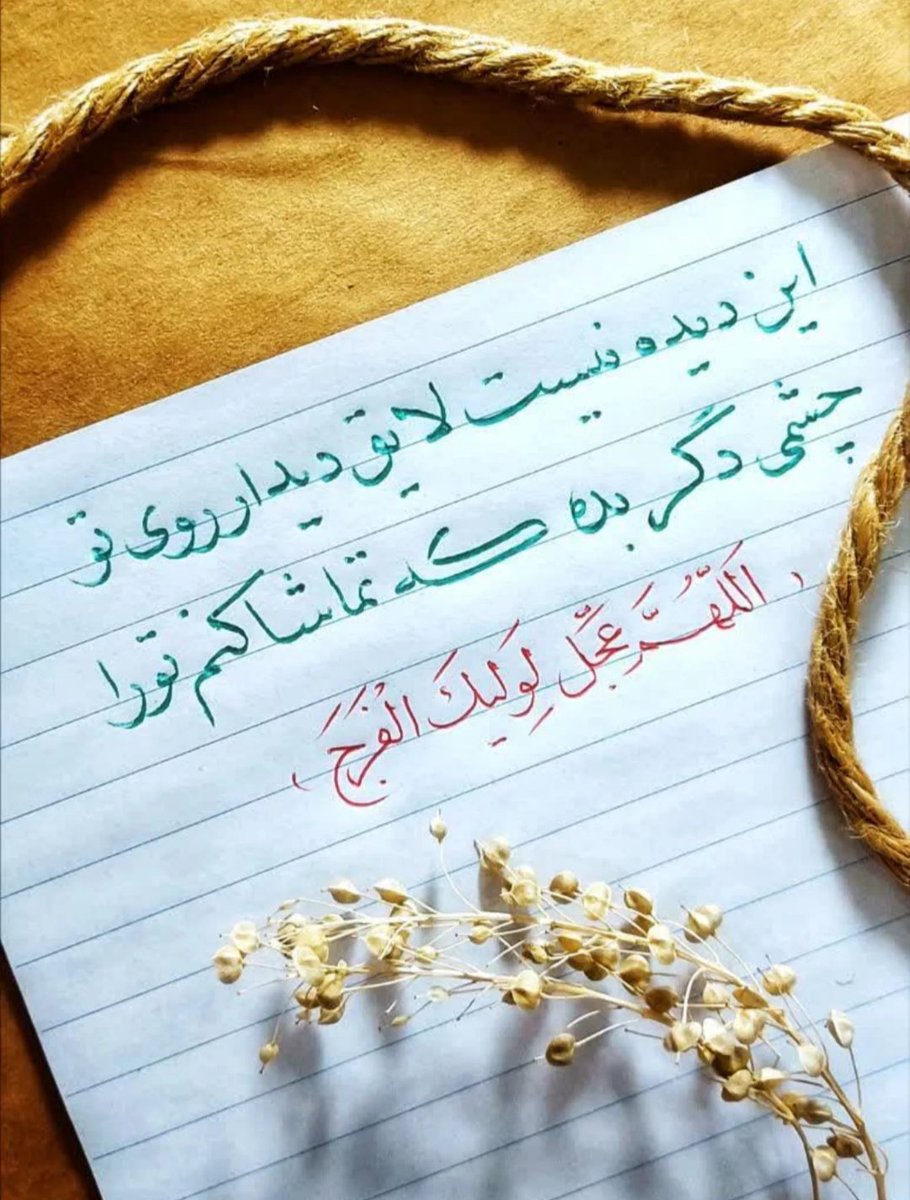 این دیده نیست لایق دیدار روی تو
چشمی دگر بده که تماشا کنم تو را
، اَللّهُمَّ عَجِّل لِوَلیكَ الْفَرَجَ ،